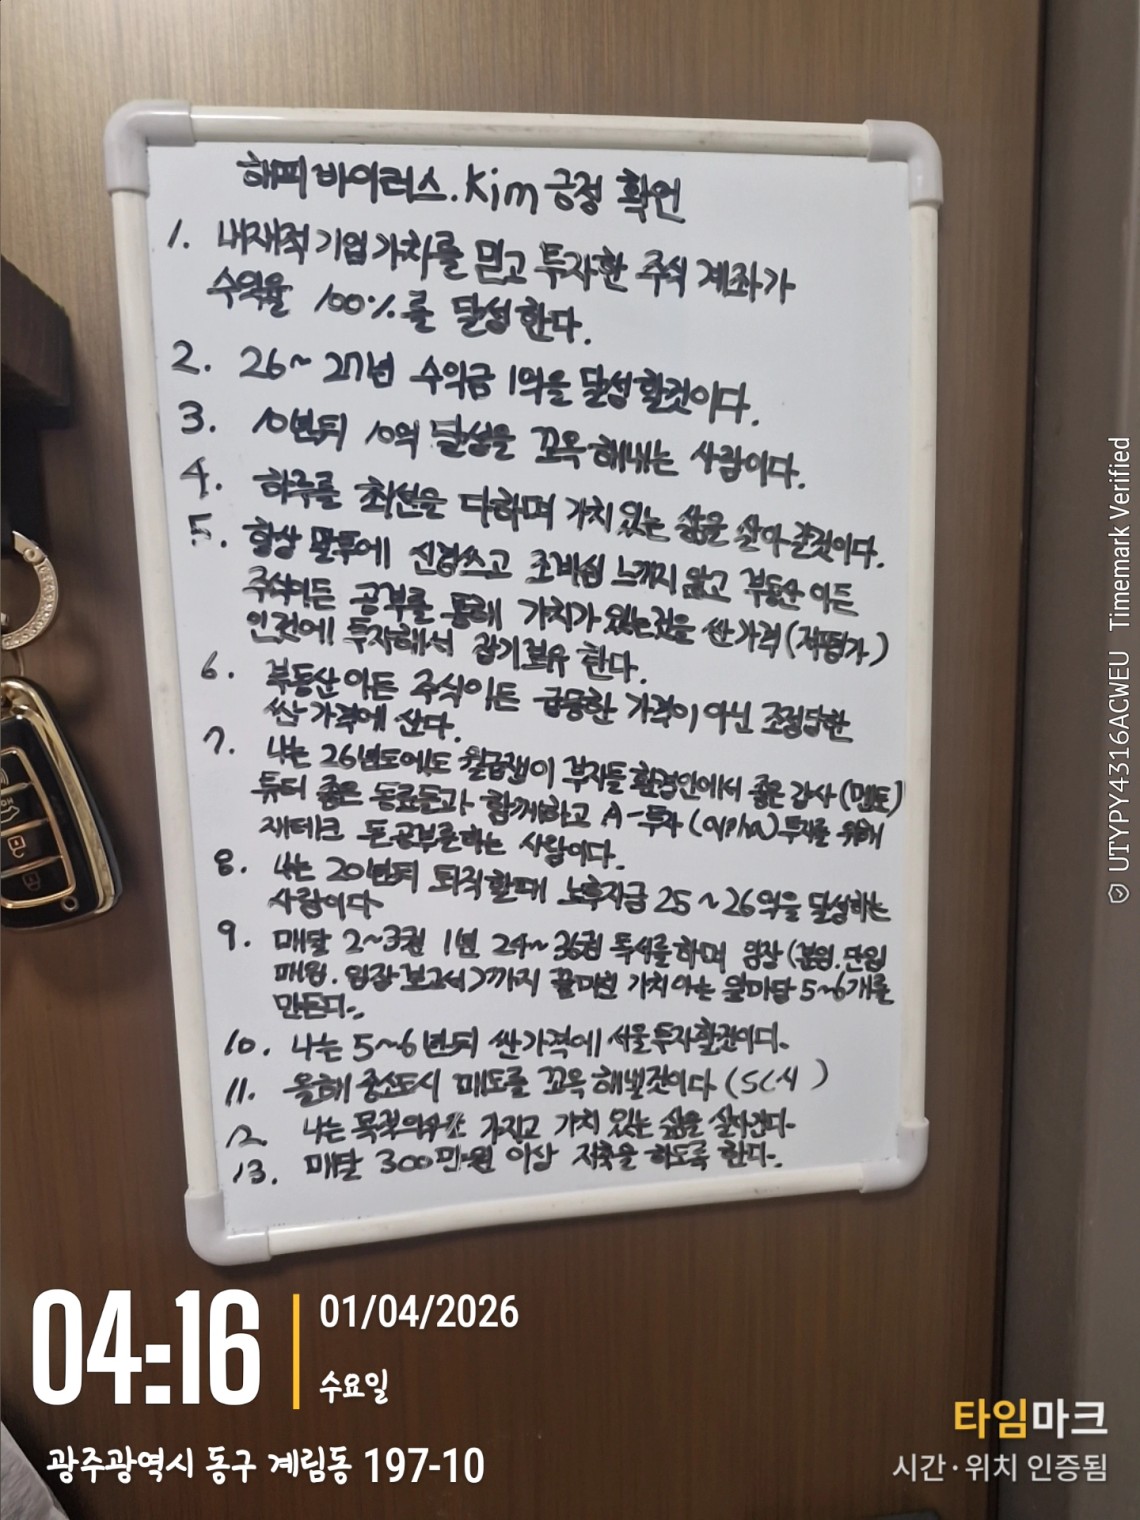 해피바이러스.Kim 긍정 확언
1. 내재적 기업가치를 믿고 투자한 주식 계좌가
수익율 100%를 달성한다.
2. 26~27년 수익금 1억을 달성할것이다.
3. 10년뒤 10억 달성을 꼬옥 해내는 사람이다.
4. 하루를 최선을 다하며 가치있는 삶을 살아갈것이다.
5. 항상 말투에 신경쓰고 조바심 느끼지 않고 부동산이든
주식이든 공부를 통해 가치가 있는것을 싼가격(저평가)
인것에 투자해서 장기보유 한다.
6. 부동산이든 주식이든 급등한 가격이 아닌 조정당한
싼가격에 산다.
7. 나는 26년도에도 월급쟁이 부자들 환경안에서 좋은 강사(멘토)
튜터 좋은 동료들과 함께하고 A-투자(alpha)투자를 위해
재테크 돈공부를하는 사람이다.
8. 나는 20년뒤 퇴직할때 노후자금 25~26억을 달성하는
사람이다
9. 매달 2~3권 1년 24~36권 독서를 하며 임장(분임.단임
매임.임장보고서)까지 끝마친 가치아는 월마당 5~6개를
만든다.
10. 나는 5~6년뒤 싼가격에 서울투자할것이다.
11. 올해 중소도시 매도를 꼬옥 해낼것이다(SC시)
12. 나는 목적의식을 가지고 가치 있는 삶을 살아간다.
13. 매달 300만원 이상 저축을 하도록 한다.
04:16
01/04/2026
수요일
광주광역시 동구 계림동 197-10
타임마크
시간·위치 인증됨
UTYPY4316ACWEU Timemark Verified